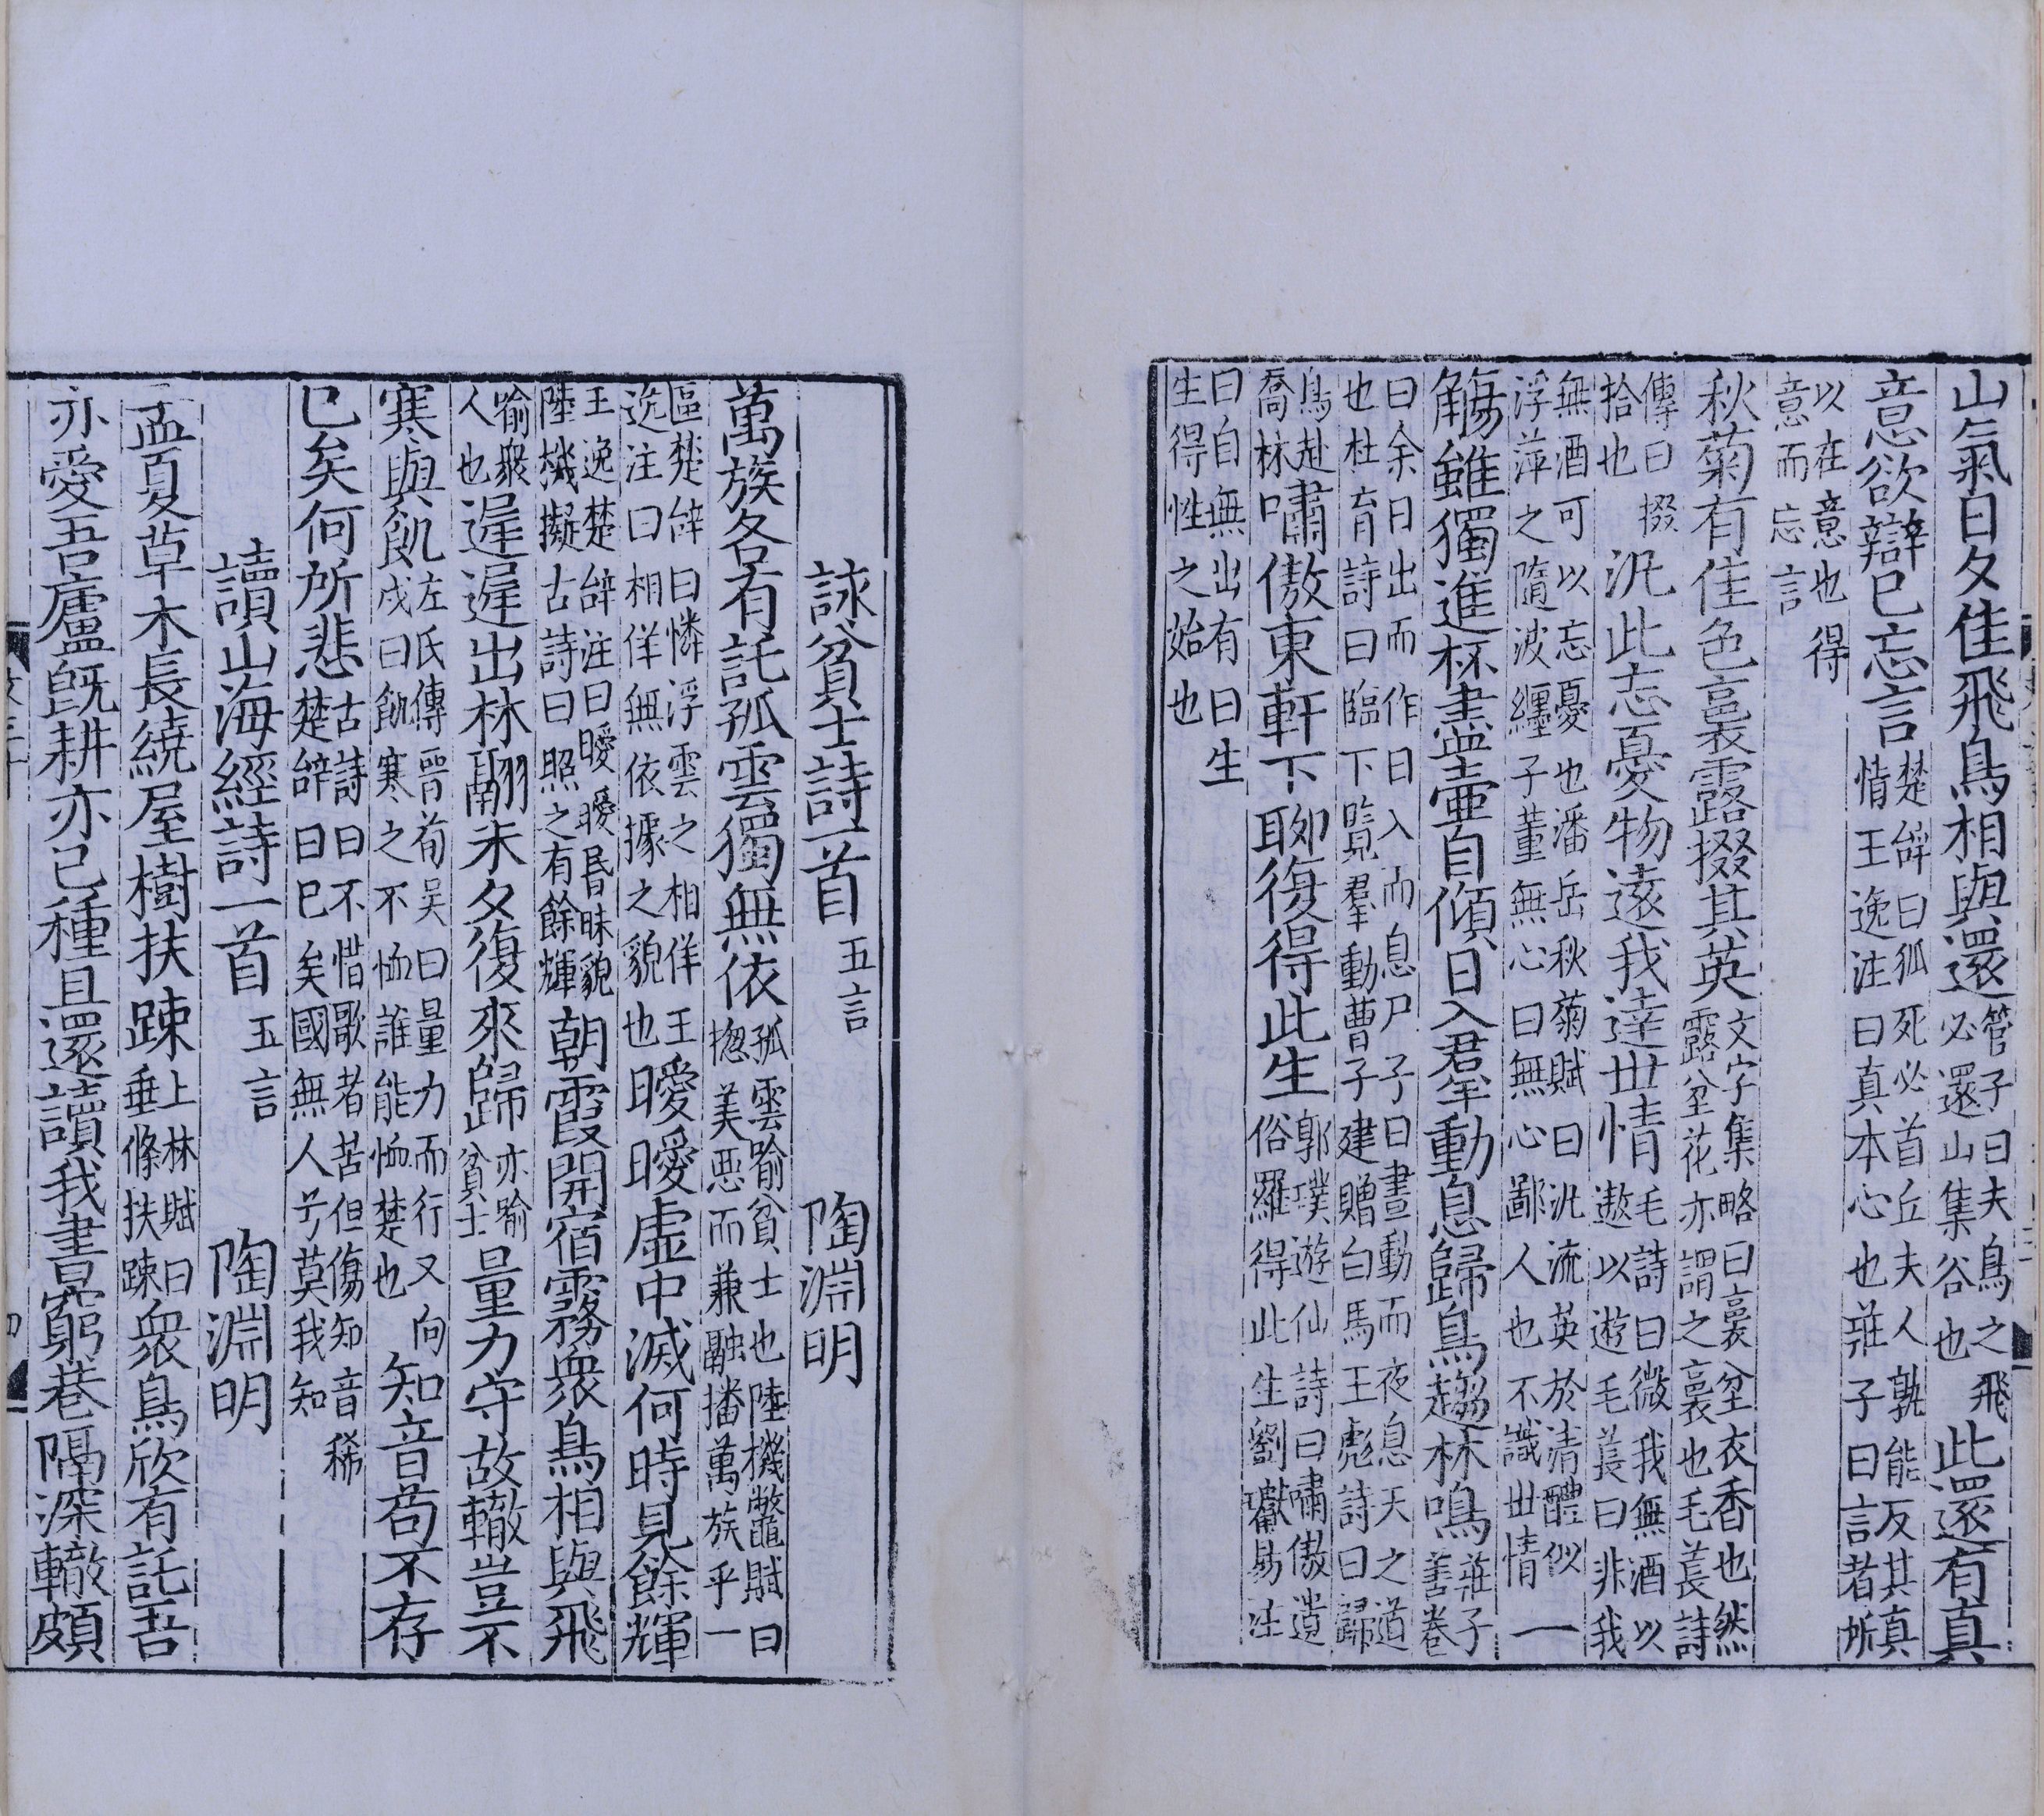 山氣日夕佳飛鳥相與還管子曰夫鳥之飛必還山集谷也此還有真
意欲辯已忘言楚辝曰狐死必首丘夫人孰能反其真情王逸注曰真本心也莊子曰言者所
以在意也得意而忘言
秋菊有佳色裛露掇其英文字集略曰裛坌衣香也然露坌花亦謂之裛也毛萇詩
傳曰掇拾也汎此忘憂物遠我達世情毛詩曰微我無酒以遨以遊毛萇曰非我
無酒可以忘憂也潘岳秋菊賦曰汎流英於清醴似浮萍之隨波纏子董無心曰無心鄙人也不識世情一
觴雖獨進杯盡壷自傾日入羣動息歸鳥趨林鳴莊子善卷
曰余日出而作日入而息尸子曰晝動而夜息天之道也杜育詩曰臨下覽羣動曹子建贈白馬王彪詩曰歸
鳥赴喬林嘯傲東軒下聊復得此生郭璞遊仙詩曰嘯傲遺俗羅得此生劉瓛易注
曰自無出有曰生生得性之始也
詠貧士詩一首五言 陶淵明
萬族各有託孤雲獨無依孤雲喻貧士也陸機鼈賦曰揔美惡而兼融播萬族乎一
區楚辝曰憐浮雲之相佯王逸注曰相佯無依據之貌也曖曖虛中滅何時見餘輝
王逸楚辝注曰曖曖昏昧貌陸機擬古詩曰照之有餘輝朝霞開宿霧衆鳥相與飛
喻衆人也遲遲出林翮未夕復來歸亦喻貧士量力守故轍豈不
寒與飢左氏傳晉荀吳曰量力而行又向戌曰飢寒之不恤誰能恤楚也知音苟不存
已矣何所悲古詩曰不惜歌者苦但傷知音稀楚辝曰已矣國無人兮莫我知
讀山海經詩一首五言 陶淵明
孟夏草木長繞屋樹扶踈上林賦曰垂條扶踈衆鳥欣有託吾
亦愛吾廬旣耕亦已種且還讀我書窮巷隔深轍頗